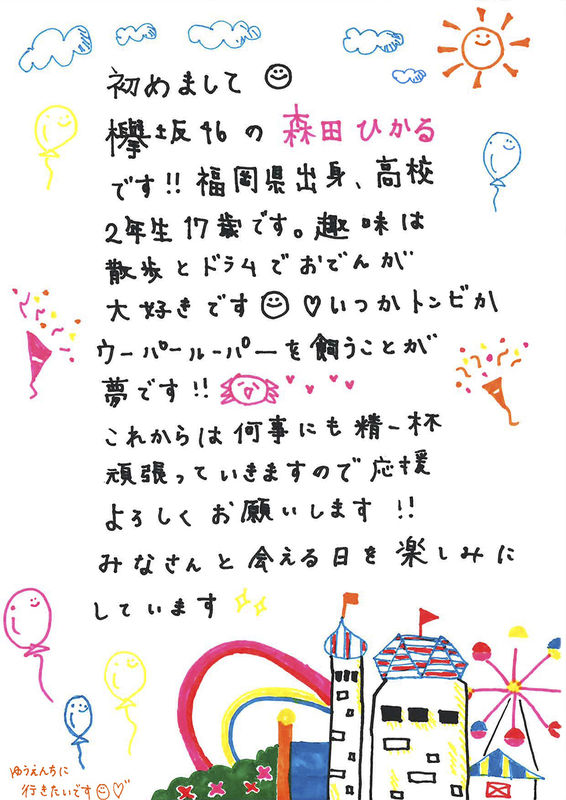 初めまして
欅坂46の 森田ひかる
です!! 福岡県出身、高校
2年生 17歳です。趣味は
散歩とドラムでおでんが
大好きです♡いつかトンビか
ウーパールーパーを飼うことが
夢です!!
これからは何事にも精一杯
頑張っていきますので応援
よろしくお願いします!!
みなさんと会える日を楽しみに
しています
ゆうえんちに
行きたいです♡